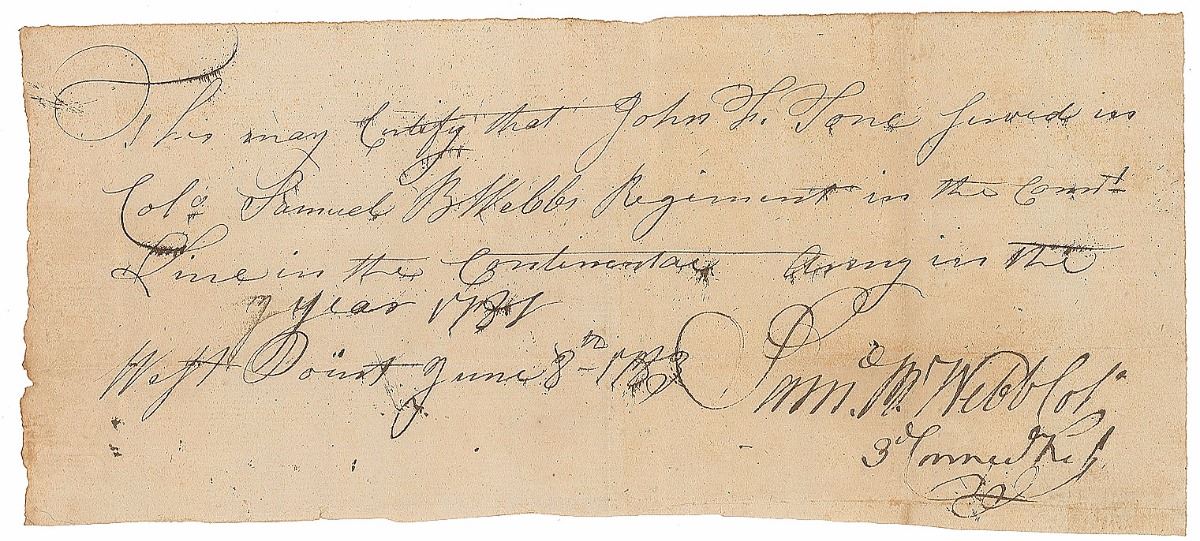 This may Certify that John F. Tone served in
Colo. Samuel B Webbs Regiment in the Connt
Line in the Continental Army in the
year 1781
West Point June 8th 1783 Saml. B. Webb Colo
3d Connect Regt